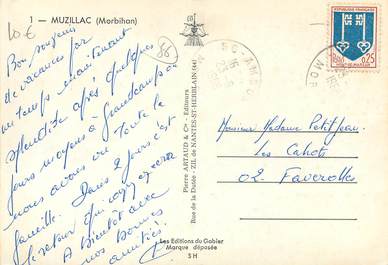 10 €
1 — MUZILLAC (Morbihan)
56
Bon souvenir
de vacances par
un temps maintenant
splendide après quelques
jours moyens à
nous avons vu toute la
famille. Dans 2 jours c'est
le retour
A bientôt avec
nos bonnes
amitiés
Pierre ARTAUD & Cie - Editeurs
Rue de la Dutée - ZIL de NANTES-ST-HERBLAIN
Les Editions du Gabier
Marque déposée
SH
REPUBLIQUE FRANÇAISE
0,25
Monsieur Madame Petit Jean
Les Cahots
02. Faverolles